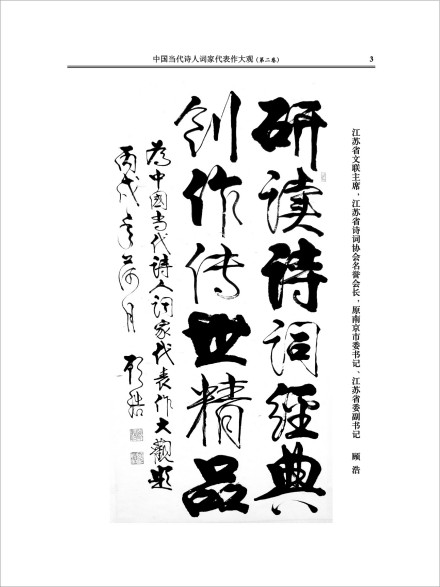 中国当代诗人词家代表作大观（第二卷） 3
江苏省文联主席，江苏省诗词协会名誉会长，原南京市委书记、江苏省委副书记 顾浩
研读诗词經典
创作传世精品
為中國当代诗人词家代表作大觀题
丙戌年荷月 顾浩